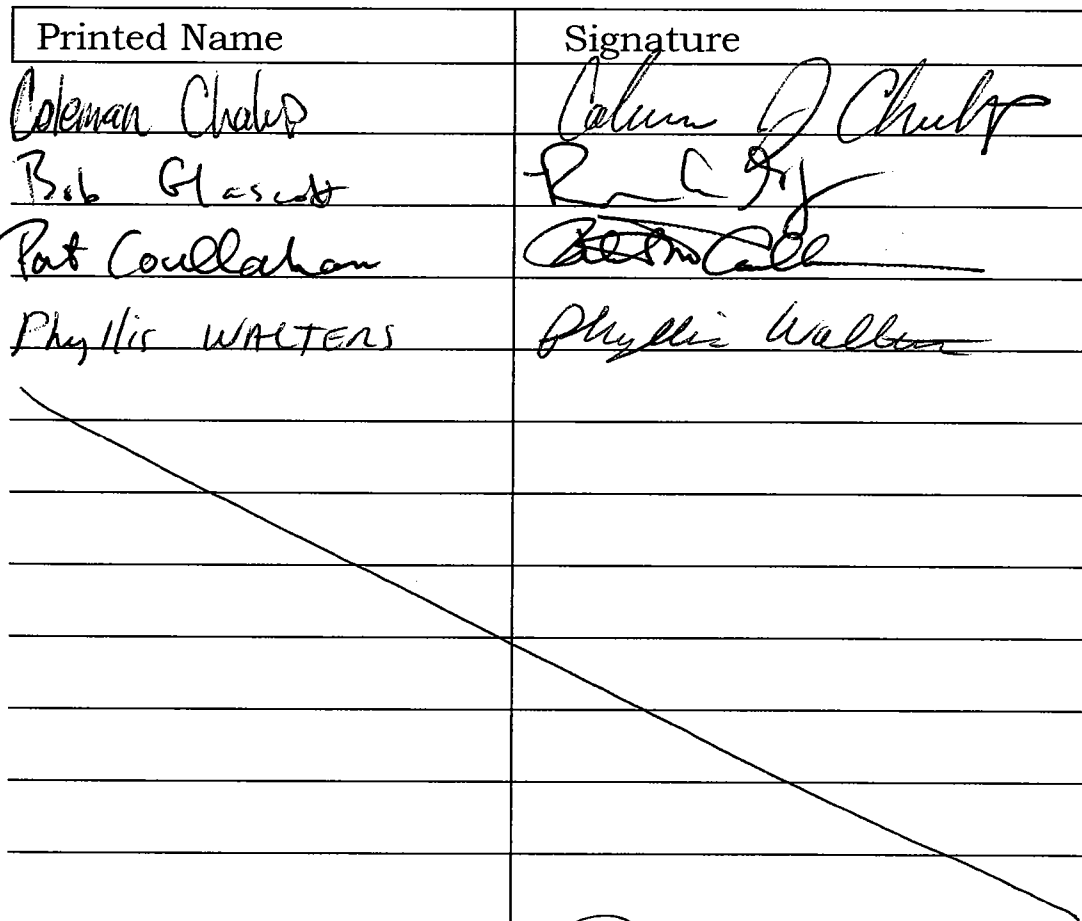 Printed Name Signature
Coleman Chalup Coleman J Chalup
Bob Glascott
Pat Coullahan
Phyllis WALTERS Phyllis Walters